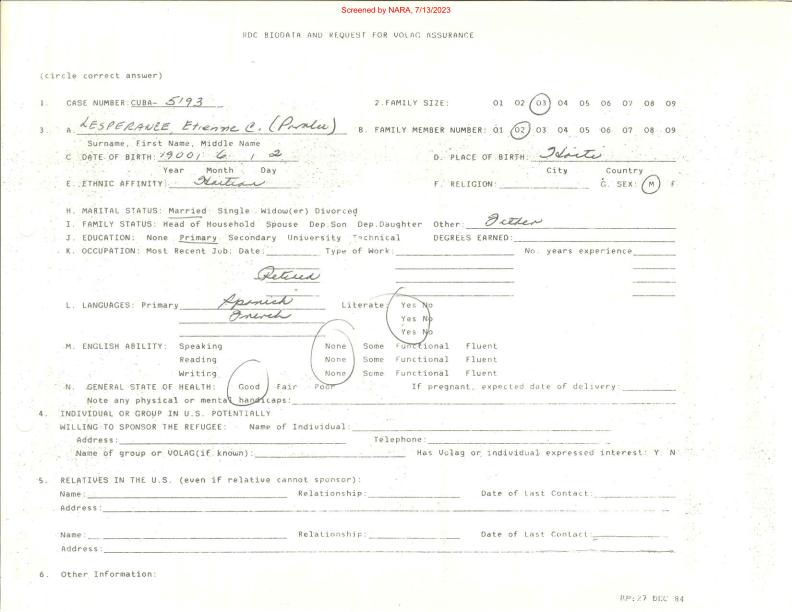 Screened by NARA, 7/13/2023
RDC BIODATA AND REQUEST FOR VOLAG ASSURANCE
(circle correct answer)
1. CASE NUMBER: CUBA- 5193 2. FAMILY SIZE: 01 02 03 04 05 06 07 08 09
3. A. LESPERANZE, Etienne C. B. FAMILY MEMBER NUMBER: 01 02 03 04 05 06 07 08 09
Surname, First Name, Middle Name
C DATE OF BIRTH: 1900 6 2 D. PLACE OF BIRTH: Haiti
Year Month Day City Country
E. ETHNIC AFFINITY: Haitian F. RELIGION: G. SEX: M F
H. MARITAL STATUS: Married Single Widow(er) Divorced
I. FAMILY STATUS: Head of Household Spouse Dep.Son Dep.Daughter Other: Father
J. EDUCATION: None Primary Secondary University Technical DEGREES EARNED:
K. OCCUPATION: Most Recent Job: Date: Type of Work: No. years experience
Retired
L. LANGUAGES: Primary Spanish Literate: Yes No
French Yes No
Yes No
M. ENGLISH ABILITY: Speaking None Some Functional Fluent
Reading None Some Functional Fluent
Writing None Some Functional Fluent
N. GENERAL STATE OF HEALTH: Good Fair Poor If pregnant, expected date of delivery:
Note any physical or mental handicaps:
4. INDIVIDUAL OR GROUP IN U.S. POTENTIALLY
WILLING TO SPONSOR THE REFUGEE: Name of Individual:
Address: Telephone:
Name of group or VOLAG(if known): Has Volag or individual expressed interest: Y N
5. RELATIVES IN THE U.S. (even if relative cannot sponsor):
Name: Relationship: Date of Last Contact:
Address:
Name: Relationship: Date of Last Contact:
Address:
6. Other Information:
RP:27 DEC 84